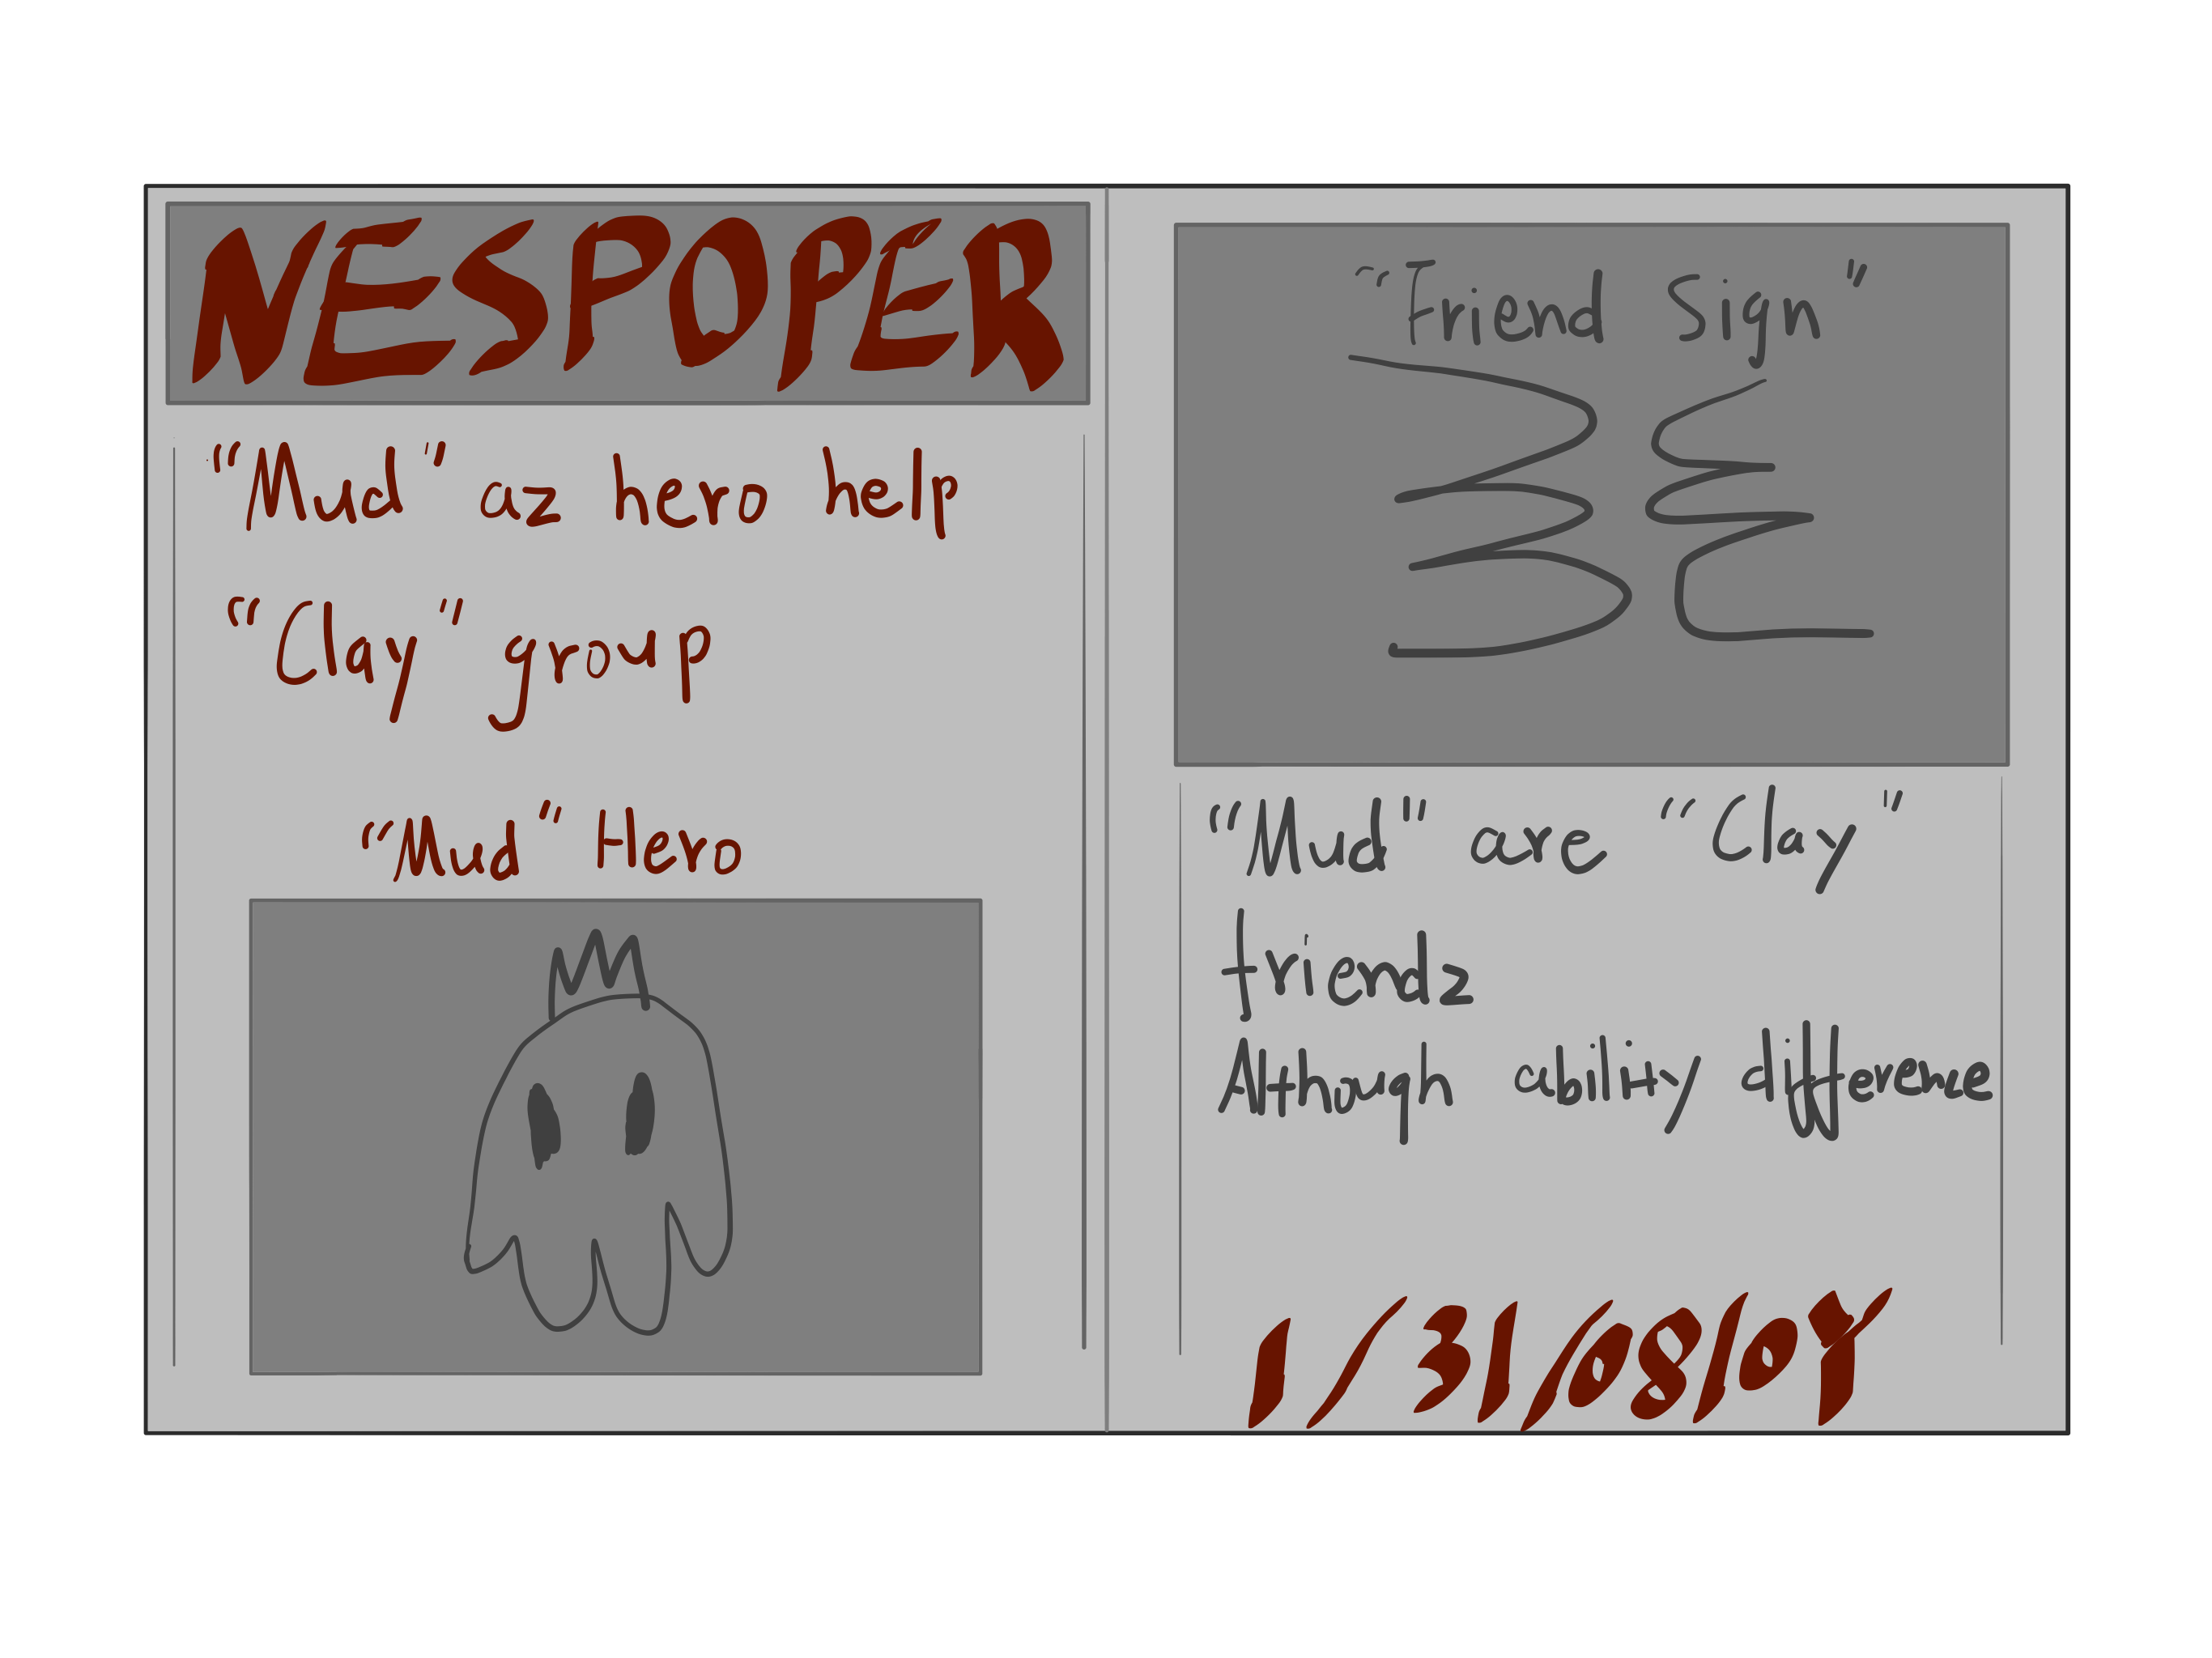 NESPOPER
"Mud" az hero help
"Clay" group
"Mud" Hero
"Friend sign"
"Mud" are "Clay"
friendz
Although ability difference
1/31/080Y